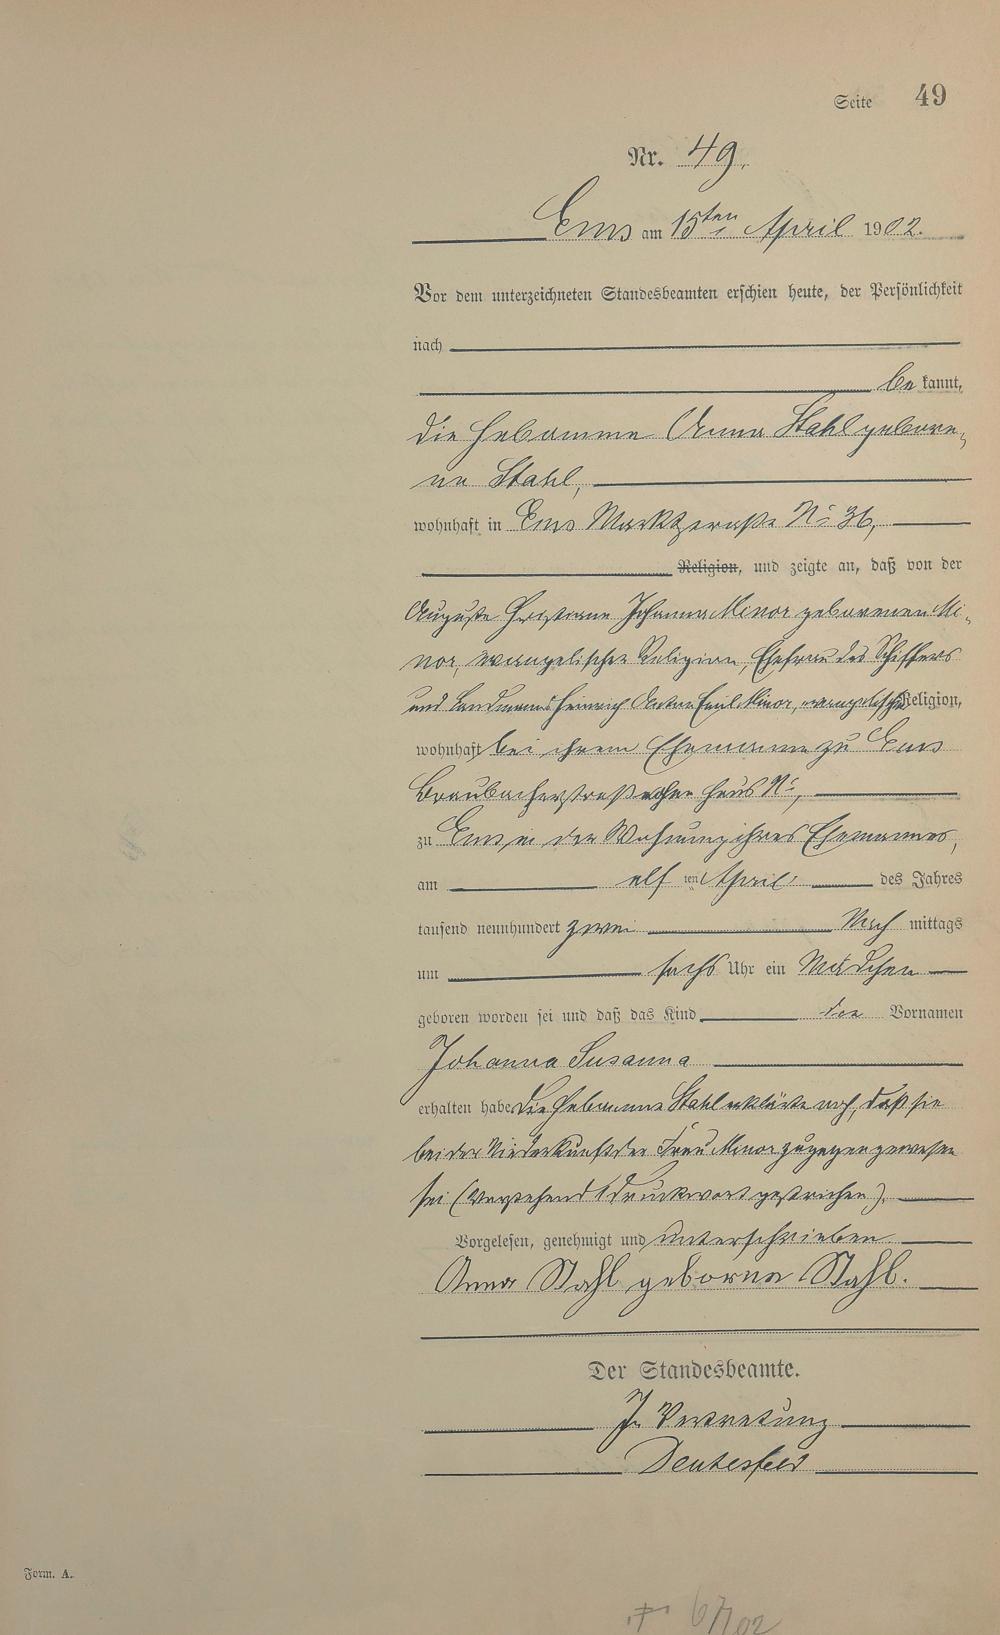 Seite 49
Nr. 49.
Ems am 15ten April 1902.
Vor dem unterzeichneten Standesbeamten erschien heute, der Persönlichkeit
nach
be kannt,
die Hebamme Anna Stahl gebore„
ne Stahl,
wohnhaft in Ems Marktstraße No 36,
Religion, und zeigte an, daß von der
Auguste Christiane Johanna Minor geborenen Mi„
nor, evangelischer Religion, Ehefrau des Schiffers
und Landmanns Heinrich Anton Emil Minor, evangelischer Religion,
wohnhaft bei ihrem Ehemanne zu Ems
Braubacherstraße ohne Haus No,
zu Ems in der Wohnung ihres Ehemannes,
am elf ten April des Jahres
tausend neunhundert zwei Nach mittags
um sechs Uhr ein Mädchen
geboren worden sei und daß das Kind die Vornamen
Johanna Susanna
erhalten habe. Die Hebamme Stahl erklärte noch, daß sie
bei der Niederkunft der Frau Minor zugegen gewesen
sei (Vorstehend 1 Druckwort gestrichen).
Vorgelesen, genehmigt und unterschrieben
Anna Stahl geborne Stahl.
Der Standesbeamte.
In Vertretung
Form. A.
67/02